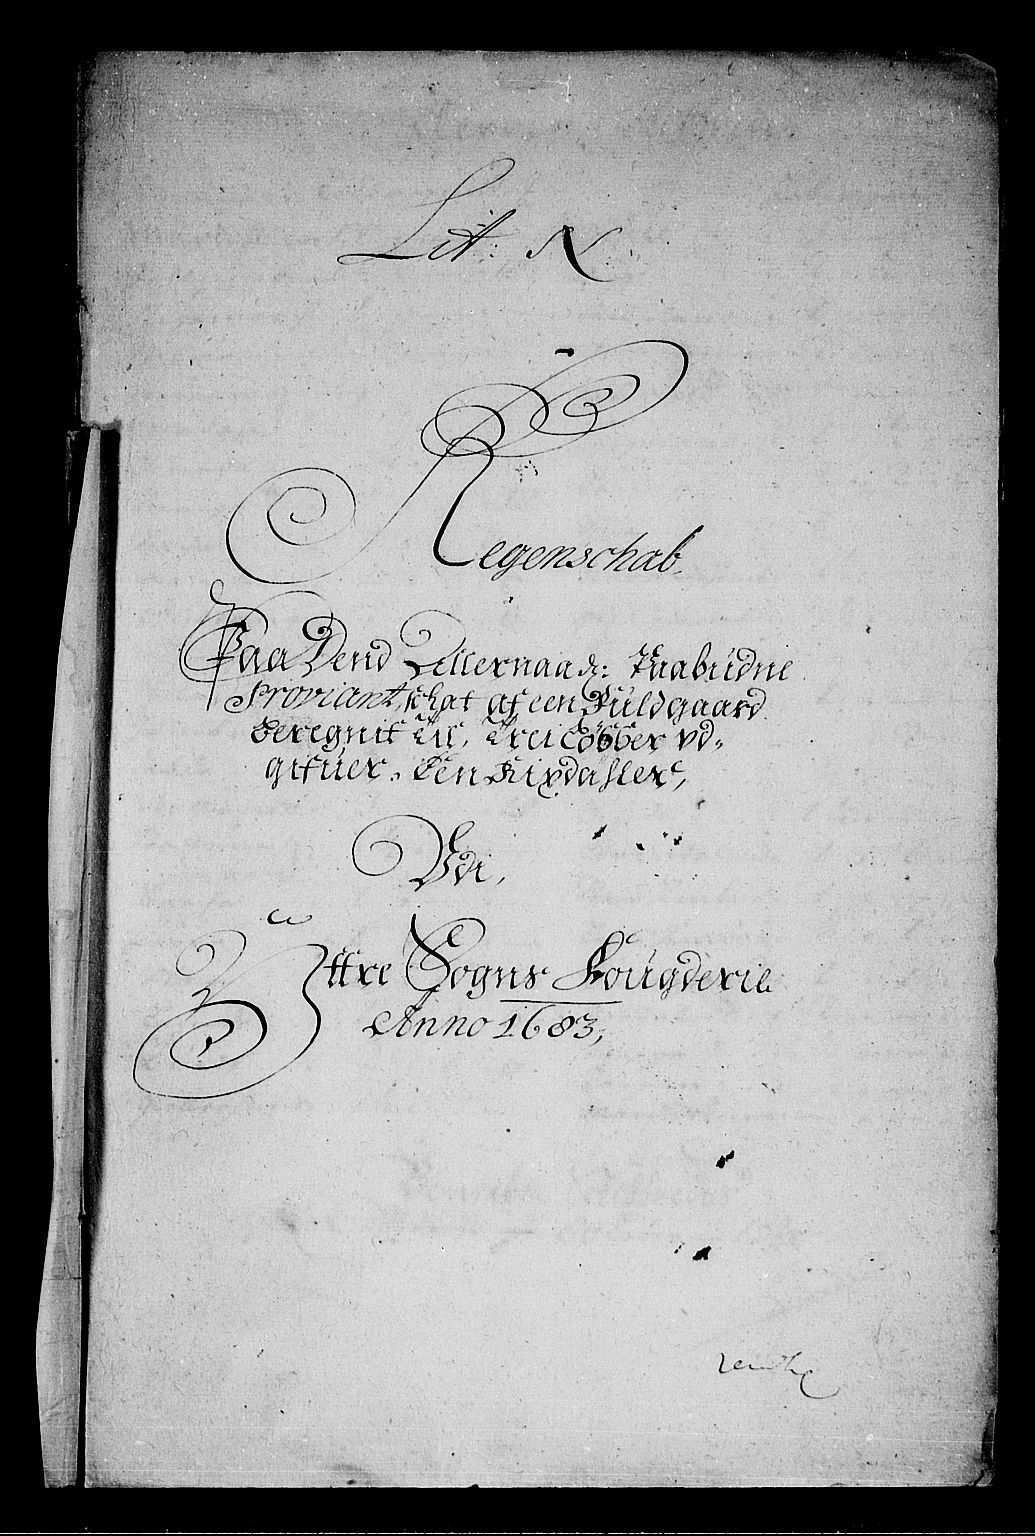 Lit: N
Regenschab
Paa Dend Allernaad: Paabudne
Proviant schat af een Fuldgaard
beregnit til, trei Cober vd„
gifuer. Een Rixdaller,
Vdi,
Yttre Sogns Fougderie
Anno 1683,